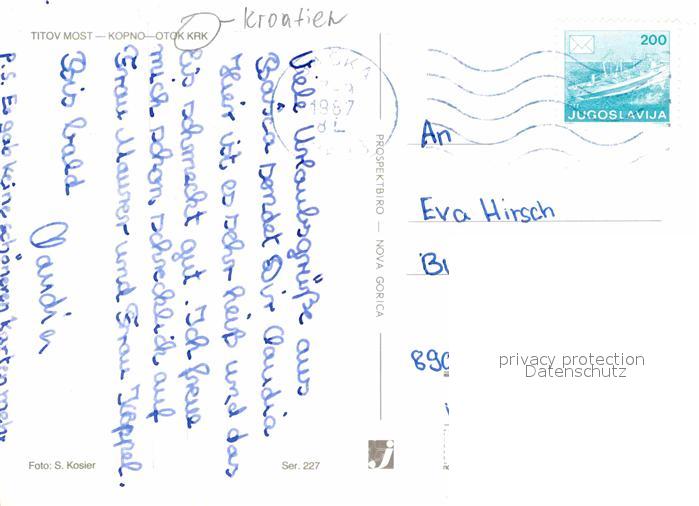 Kroatien
TITOV MOST — KOPNO—OTOK KRK
Viele Urlaubsgrüße aus
Baška sendet Dir Claudia
Hier ist es sehr heiß und das
Eis schmeckt gut. Ich freue
mich schon schrecklich auf
Frau Maurer und Frau Keppel.
Bis bald
Claudia
P.S. Es gab keine schöneren Karten mehr
Foto: S. Kosier
Ser. 227
PROSPEKTBIRO — NOVA GORICA
1987
200
JUGOSLAVIJA
An
Eva Hirsch
890
privacy protection
Datenschutz